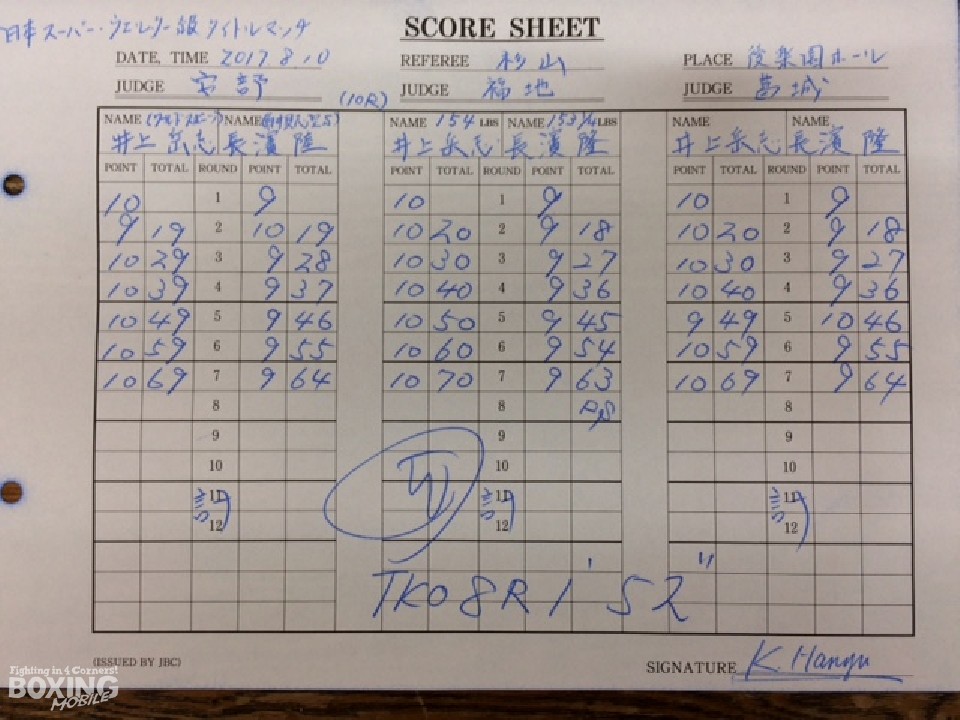 SCORE SHEET
日本スーパー・ウェルター級タイトルマッチ
DATE, TIME 2017.8.10 REFEREE 杉山 PLACE 後楽園ホール
JUDGE 安部 (10R) JUDGE 福地 JUDGE 葛城
NAME NAME NAME 154 LBS NAME 153 3/4 LBS NAME NAME
井上岳志 長濱陸 井上岳志 長濱陸 井上岳志 長濱陸
POINT TOTAL ROUND POINT TOTAL POINT TOTAL ROUND POINT TOTAL POINT TOTAL ROUND POINT TOTAL
10 1 9 10 1 9 10 1 9
9 19 2 10 19 10 20 2 9 18 10 20 2 9 18
10 29 3 9 28 10 30 3 9 27 10 30 3 9 27
10 39 4 9 37 10 40 4 9 36 10 40 4 9 36
10 49 5 9 46 10 50 5 9 45 9 49 5 10 46
10 59 6 9 55 10 60 6 9 54 10 59 6 9 55
10 69 7 9 64 10 70 7 9 63 10 69 7 9 64
8 8 8
9 9 9
10 10 10
11 11 11
12 12 12
TKO 8R 1'52"
(ISSUED BY JBC)
SIGNATURE K. Hanyu
Fighting in 4 Corners!
BOXING
MOBILE